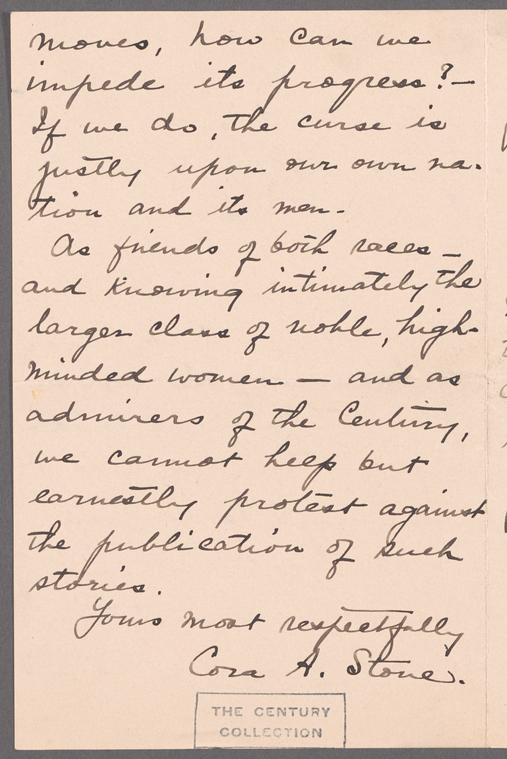 moves, how can we
impede its progress?—
If we do, the curse is
justly upon our own na-
tion and its men.
As friends of both races—
and knowing intimately the
larger class of noble, high-
minded women — and as
admirers of the Century,
we cannot help but
earnestly protest against
the publication of such
stories.
Yours most respectfully
Cora A. Stone.
THE CENTURY
COLLECTION